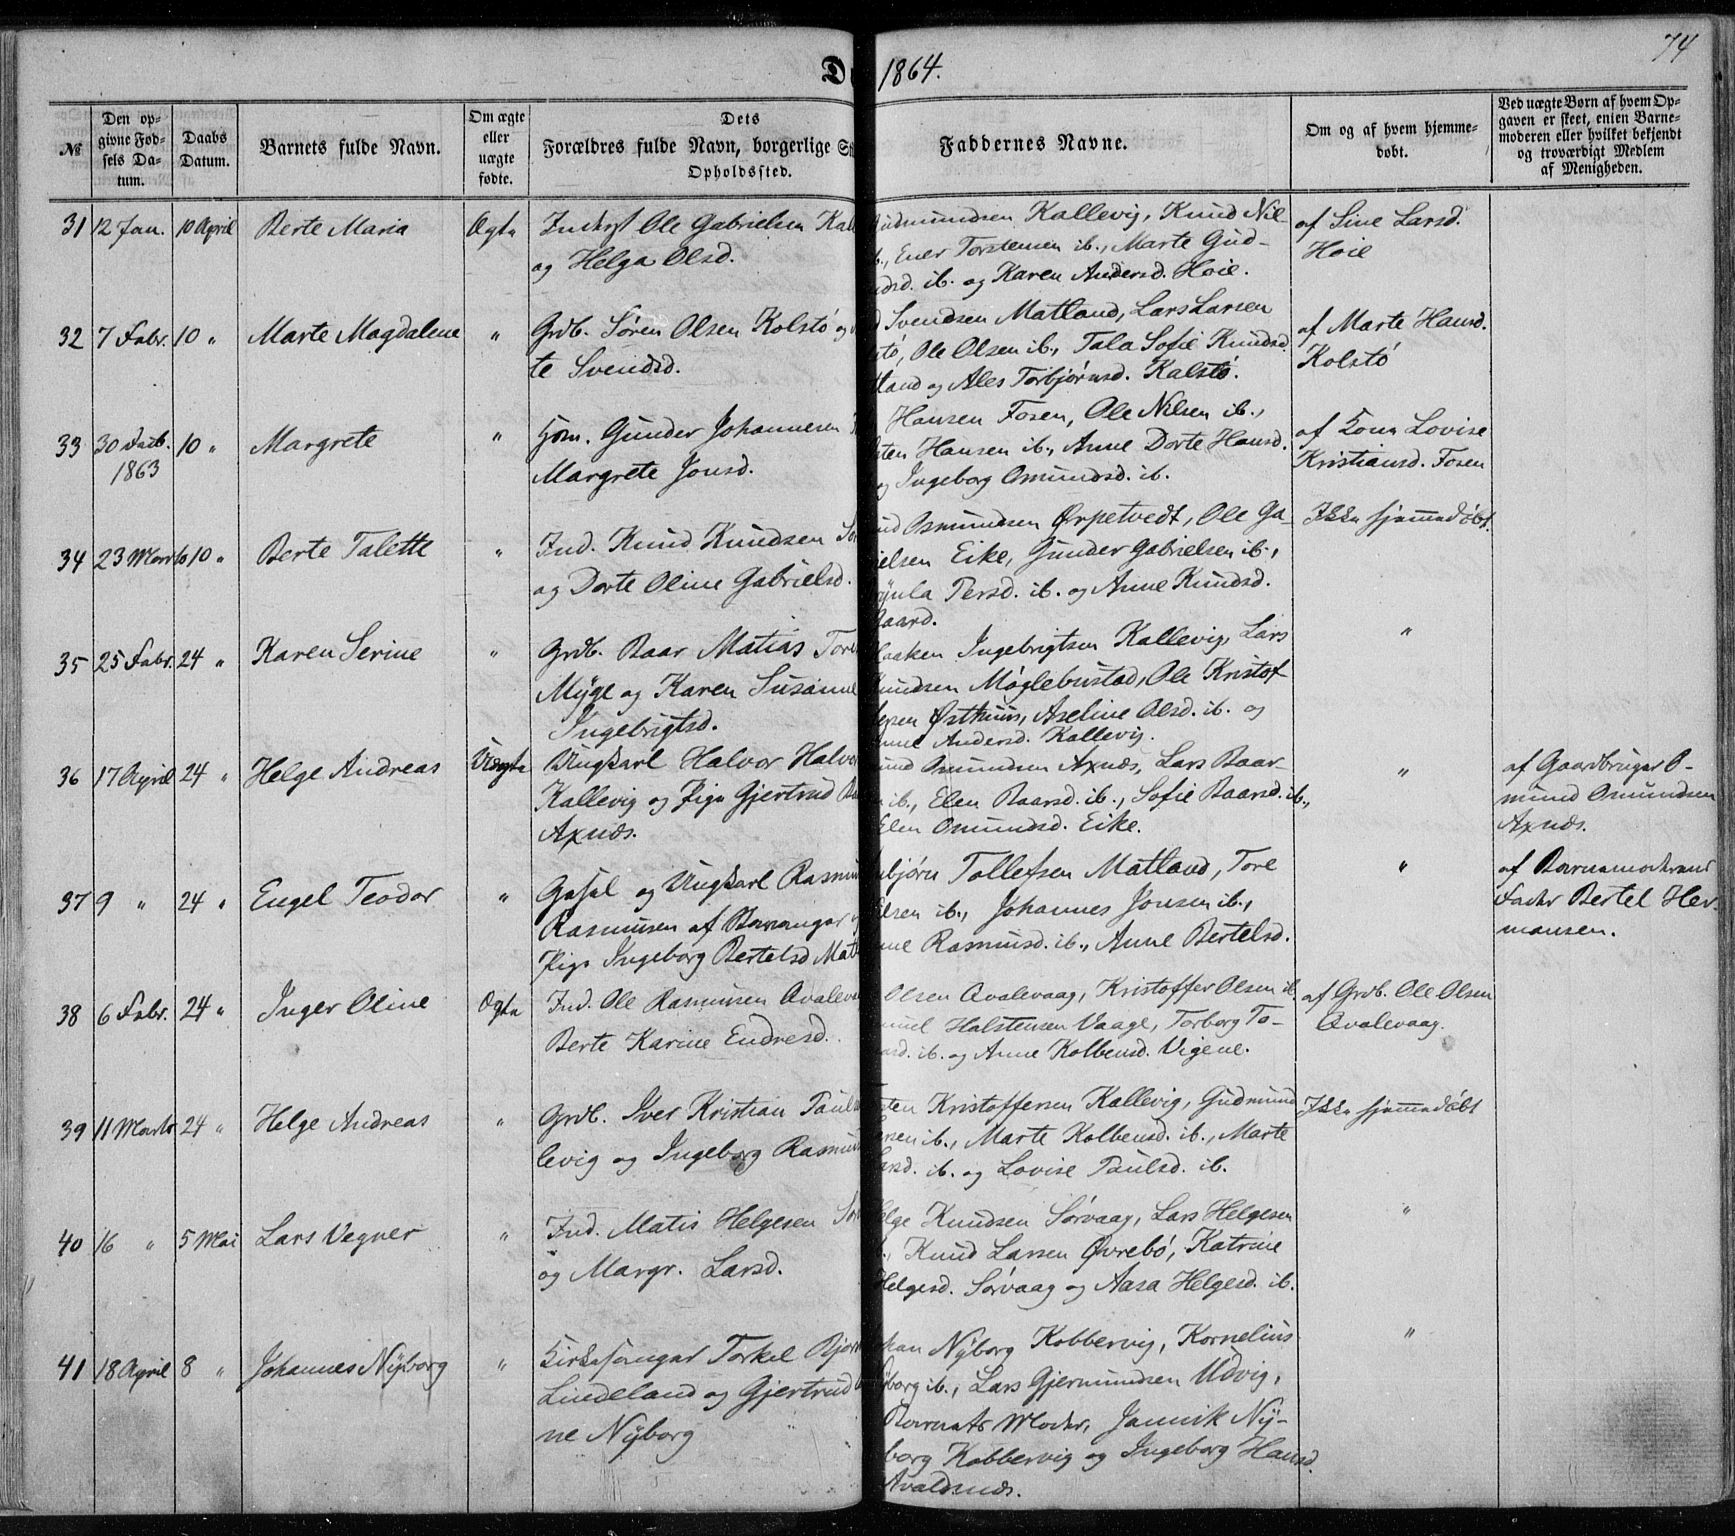 74
1864.
№
Den op-
givne Fød-
sels Da-
tum.
Daabs
Datum.
Barnets fulde Navn.
Om ægte
eller
uægte
fødte.
Dets
Forældres fulde Navn, borgerlige
Opholdssted.
Faddernes Navne.
Om og af hvem hjemme-
døbt.
Ved uægte Børn af hvem Op-
gaven er skeet, enten Barne-
moderen eller hvilket bekjendt
og troværdigt Medlem
af Menigheden.
31 12 Jan. 10 April Berte Maria Ægte
Inderst Ole Gabrielsen
og Helga Olsd.
Gudmundsen Kallevig, Knud Nil-
Ener Torstensen ib., Marte Gud-
ib. og Karen Andersd. Høie.
af Sine Larsd.
Høie
32 7 Febr. 10 " Marte Magdalene "
Grdb. Søren Olsen Kolstø og
te Svendsd.
Svendsen Matland, Lars Larsen
Ole Olsen ib., Tala Sofie Knudsd.
og Ales Torbjørnsd. Kalstø.
af Marte Hansd.
Kolstø
33 30 1863 10 " Margrete "
Hsm. Gunder Johannesen
Margrete Jonsd.
Hansen Fosen, Ole Nilsen ib.,
Hansen ib., Anne Dorte Hansd.
og Ingeborg Omundsd. ib.
af Kona Lovise
Kristiansd. Fosen
34 23 Marts 10 " Berte Talette "
Ind. Knud Knudsen
og Dorte Oline Gabrielsd.
Osmundsen Ørpetvedt, Ole Ga-
Eike, Gunder Gabrielsen ib.,
Persd. ib. og Anne Knudsd.
Ikke hjemmedøbt.
35 25 Febr. 24 " Karen Serine "
Grdb. Baar Matias
Myge og Karen Susanne
Ingebrigtsd.
Haaken Ingebrigtsen Kallevig, Lars
Knudsen Møglebustad, Ole Kristof
Østhuus, Aseline Olsd. ib. og
Andersd. Kallevig.
"
36 17 April 24 " Helge Andreas Uægte
Ungkarl Halvor
Kallevig og Pige Gjertrud
Axnæs.
Omundsen Axnæs, Lars Baar-
ib., Elen Baarsd. ib., Sofie Baarsd. ib.,
Elen Omundsd. Eike.
"
af Gaardbruger O-
mund Omundsen
Axnæs.
37 9 " 24 " Engel Teodor "
og Ungkarl
Rasmusen af
Pige Ingeborg Bertelsd
Tollefsen Matland, Tore
ib., Johannes Jonsen ib.,
Rasmusd. ib., Anne Bertelsd.
"
af Barnemoderens
Fader Bertel Her-
mansen.
38 6 Febr. 24 " Inger Oline Ægte
Ind. Ole Rasmusen
Berte Karine Endresd.
Olsen Qvalevaag, Kristoffer Olsen ib.
Halstensen Vaage, Torborg To-
ib. og Anne Kolbensd. Vigene.
af Grdb. Ole Olsen
Qvalevaag.
39 11 Marts 24 " Helge Andreas "
Grdb. Iver Kristian
levig og Ingeborg
Kristoffersen Kallevig, Gudmund
ib., Marte Kolbensd. ib., Marte
ib. og Lovise Paulsd. ib.
Ikke hjemmedøbt
40 16 " 5 Mai Lars Vegner "
Ind. Matis Helgesen
og Margr. Larsd.
Helge Knudsen Sørvaag, Lars Helgesen
Knud Larsen Øvrebø, Katrine
Helgesd. Sørvaag og Aasa Helgesd. ib.
"
41 18 April 8 " Johannes Nyborg "
Kirkesanger Torkel
Lindeland og Gjertrud
ne Nyborg
Nyborg Kobbervig, Kornelius
ib., Lars Gjermundsen Udvig,
Barnets Moder, Jannik Ny-
borg Kobbervig og Ingeborg Hansd.
Avaldsnæs.
"